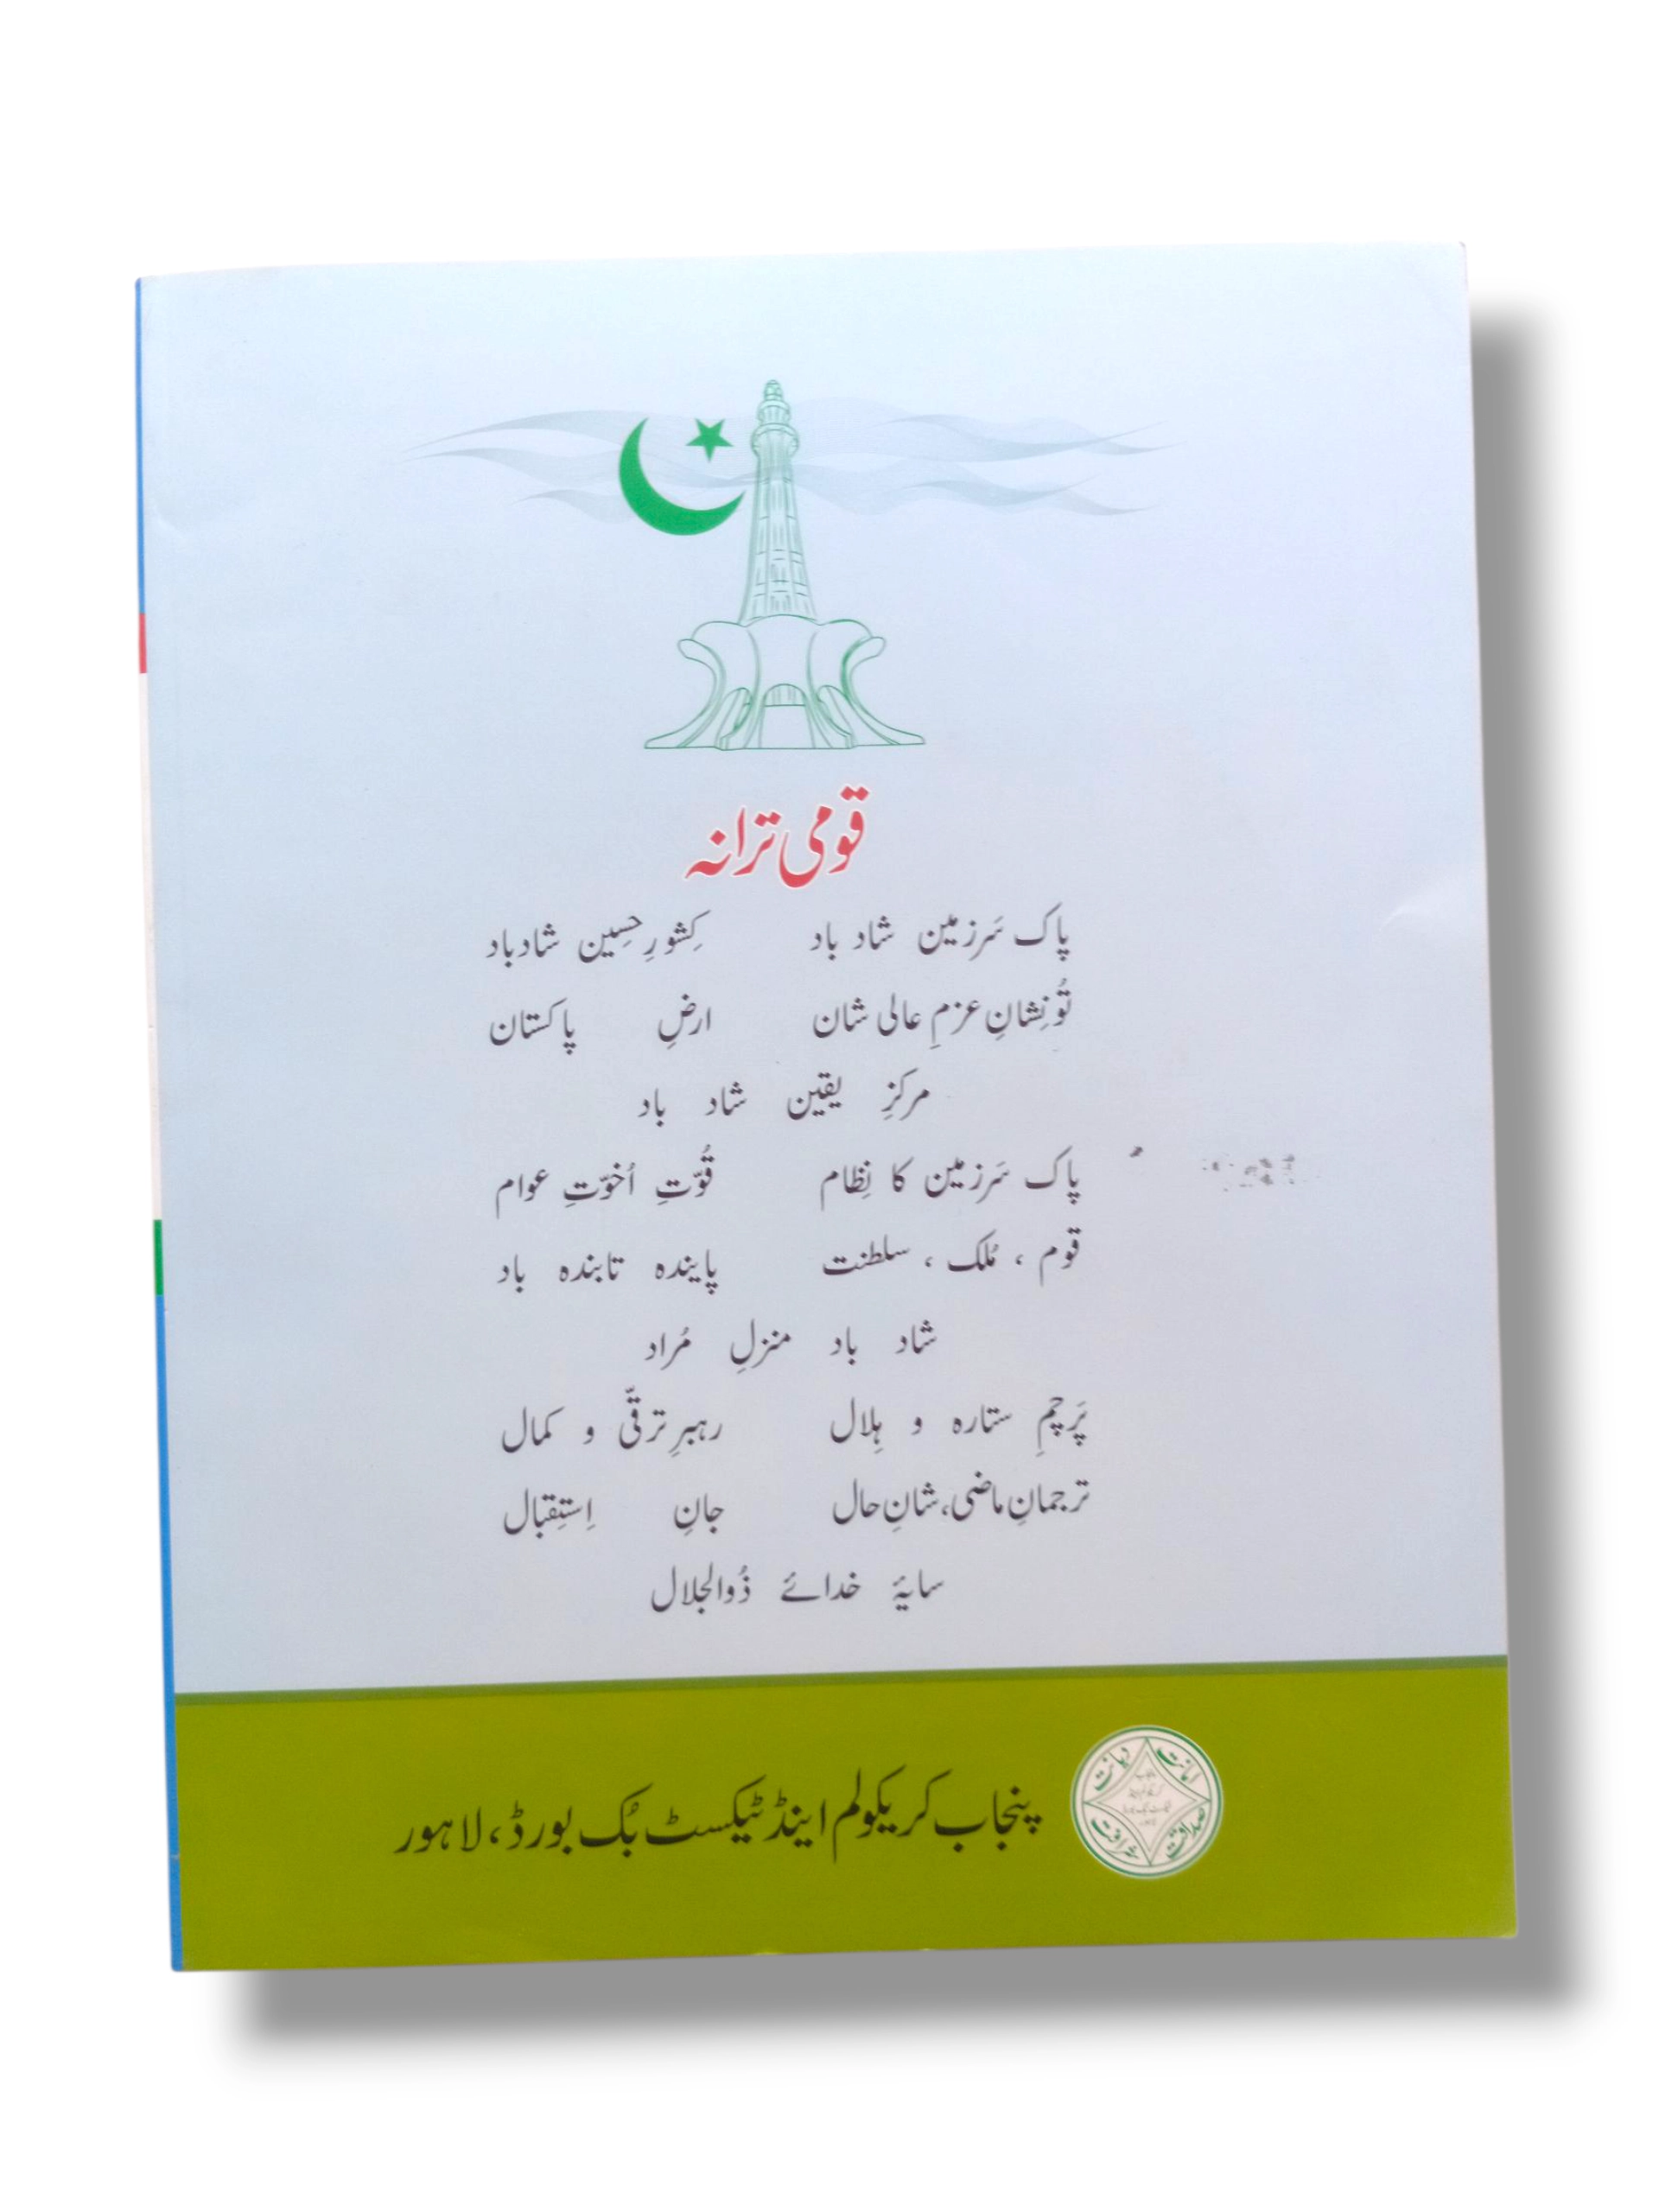 قومی ترانہ
پاک سَرزمین شاد باد کِشورِ حسِین شاد باد
تُو نِشانِ عزمِ عالی شان ارضِ پاکستان
مرکزِ یقین شاد باد
پاک سَرزمین کا نِظام قُوّتِ اُخوّتِ عوام
قوم ، مُلک ، سلطنت پایندہ تابندہ باد
شاد باد منزلِ مُراد
پَرچمِ ستارہ و ہِلال رہبرِ ترقّی و کمال
ترجمانِ ماضی، شانِ حال جانِ اِستِقبال
سایۂ خدائے ذُوالجلال
پنجاب کریکولم اینڈ ٹیکسٹ بُک بورڈ، لاہور
امانت دیانت
صداقت شرافت